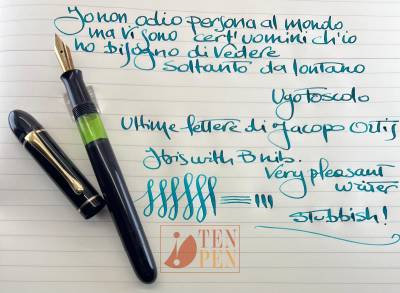 Io non odio persona al mondo
ma vi sono cert'uomini ch'io
ho bisogno di vedere
soltanto da lontano
Ugo Foscolo
Ultime lettere di Jacopo Ortis
Ibis with B nib.
Very pleasant
writer
Stubbish!
TEN
PEN